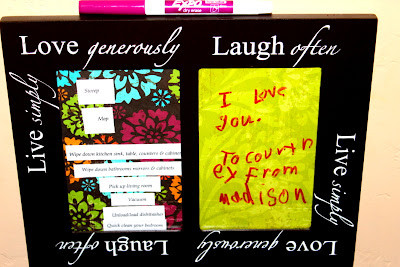 EXPO
dry erase
Love generously
Laugh often
Live simply
Sweep
Mop
Wipe down kitchen sink, table, counters & cabinets
Wipe down bathrooms mirrors & cabinets
Pick up living room
Vacuum
Unload/load dishwasher
Quick clean your bedroom
I love
you.
To courtn
ey From
madison
Live simply
Laugh often
Love generously